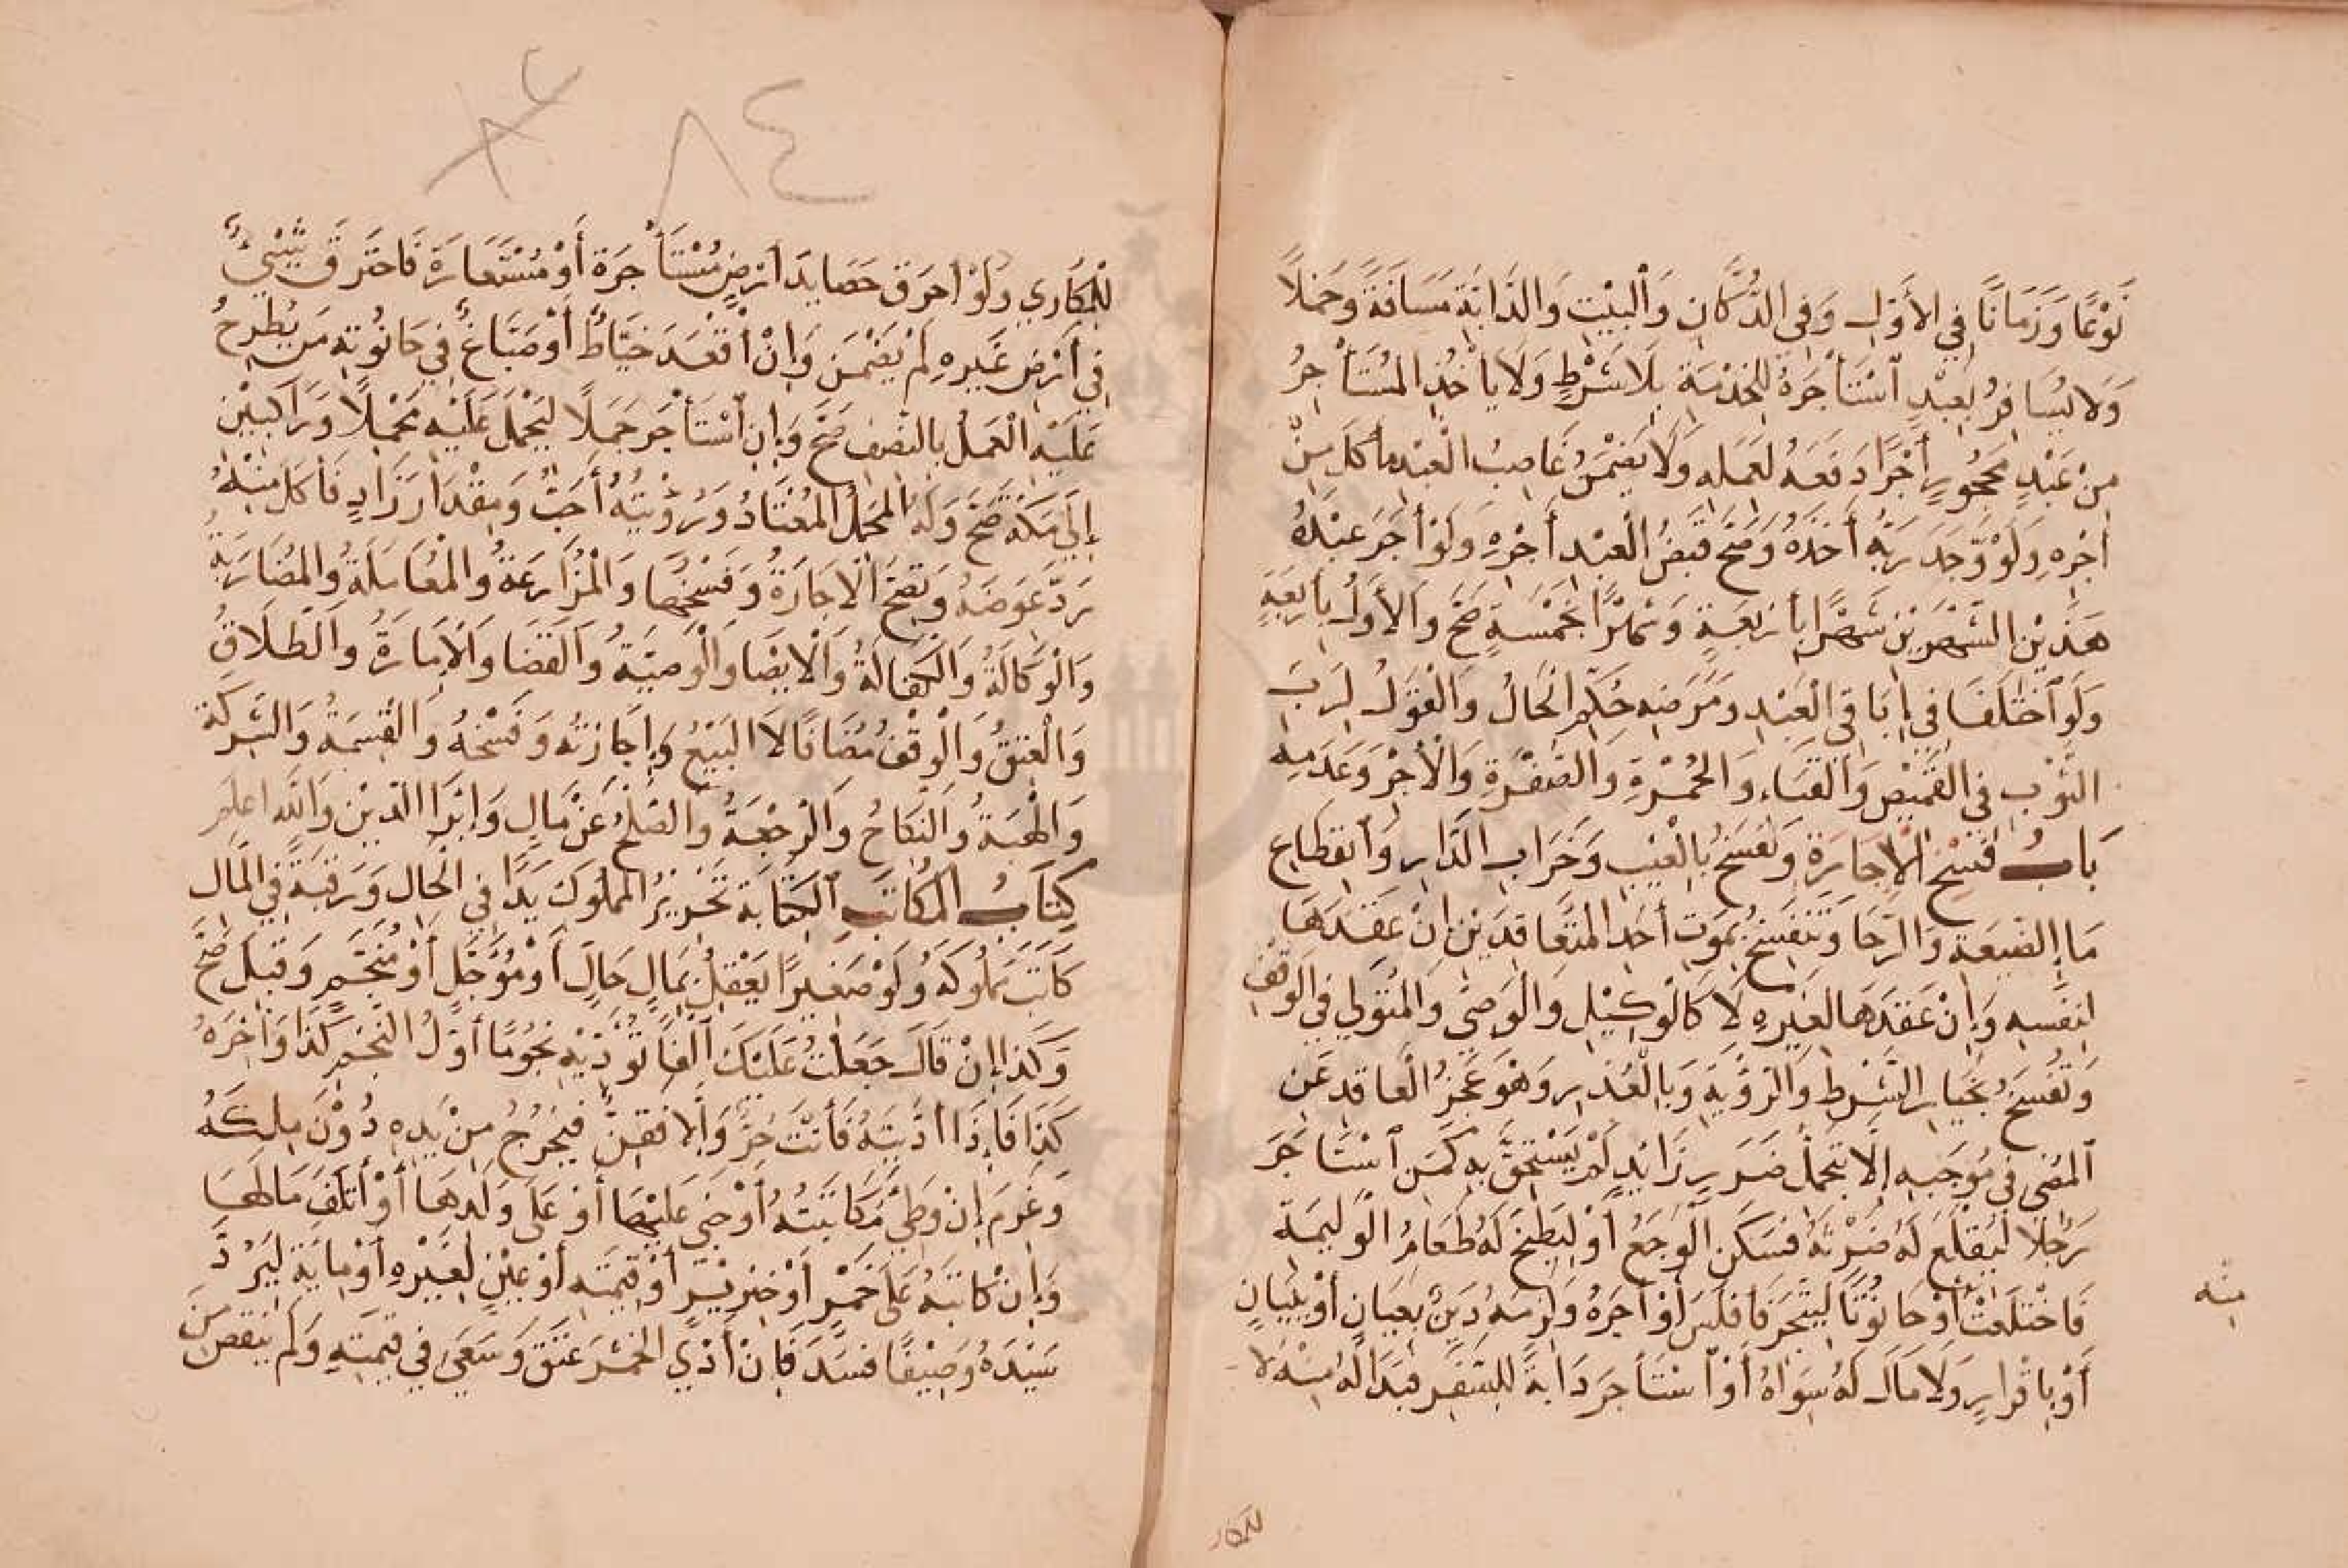 نَوْعًا وَزَمَانًا فِي الأَوَّلِ وَفِي الدُّكَّانِ وَالبَيْتِ وَالدَّابَّةِ مَسَافَةً وَحَمْلًا
وَلَا يُسَافِرُ بِعَبْدٍ ٱسْتَأْجَرَهُ لِلْخِدْمَةِ بِلَا شَرْطٍ وَلَا يَأْخُذُ المُسْتَأْجِرُ
مِنْ عَبْدٍ مَحْجُورٍ أَجْرًا دَفَعَهُ لِعَمَلِهِ وَلَا يَضْمَنُ غَاصِبُ العَبْدِ مَا أَكَلَ مِنْ
أَجْرِهِ وَلَوْ وَجَدَ رَبُّهُ أَخَذَهُ وَصَحَّ قَبْضُ العَبْدِ أَجْرَهُ وَلَوْ أَجَرَ عَبْدَهُ
هَذَيْنِ الشَّهْرَيْنِ شَهْرًا بِأَرْبَعَةٍ وَشَهْرًا بِخَمْسَةٍ صَحَّ وَالأَوَّلُ بِأَرْبَعَةٍ
وَلَو ٱخْتَلَفَا فِي إِبَاقِ العَبْدِ وَمَرَضِهِ حُكِّمَ الحَالُ وَالْقَوْلُ لِرَبِّ
الثَّوْبِ فِي القَمِيْصِ وَالقَبَاءِ وَالحُمْرَةِ وَالصُّفْرَةِ وَالْأَجْرِ وَعَدَمِهِ
بَابُ فَسْخِ الإِجَارَةِ وَتُفْسَخُ بِالْعَيْبِ وَخَرَابِ الدَّارِ وَٱنْقِطَاعِ
مَاءِ الضَّيْعَةِ وَالرَّحَا وَتَنْفَسِخُ بِمَوْتِ أَحَدِ المُتَعَاقِدَيْنِ إِنْ عَقَدَهَا
لِنَفْسِهِ وَإِنْ عَقَدَهَا لِغَيْرِهِ لَا كَالْوَكِيْلِ وَالْوَصِيِّ وَالمُتَوَلِّي فِي الوَقْفِ
وَتُفْسَخُ بِخِيَارِ الشَّرْطِ وَالرُّؤْيَةِ وَبِالْعُذْرِ وَهْوَ عَجْزُ الْعَاقِدِ عَن
ٱلمُضِيِّ فِي مُوْجَبِهِ إِلَّا بِتَحَمُّلِ ضَرَرٍ زَائِدٍ لَمْ يُسْتَحَقَّ بِهِ كَمَنِ ٱسْتَأْجَرَ
رَجُلًا لِيَقْلَعَ لَهُ ضِرْسَهُ فَسَكَنَ الْوَجَعُ أَوْ لِيَطْبُخَ لَهُ طَعَامَ الْوَلِيمَةِ
فَاخْتَلَعَتْ أَوْ حَانُوْتًا لِيَتَّجِرَ فَأَفْلَسَ أَوْ أَجَرَهُ وَلَزِمَهُ دَيْنٌ بِعِيَانٍ أَوْ بِبَيَانٍ
أَوْ بِإِقْرَارٍ وَلَا مَالَ لَهُ سِوَاهُ أَوْ ٱسْتَأْجَرَ دَابَّةً لِلسَّفَرِ فَبَدَا لَهُ مِنْهُ لَا
منه
للمكار
٨٤
لِلْمُكَارِي وَلَوْ أَحْرَقَ حَصَايِدَ أَرْضٍ مُسْتَأْجَرَةٍ أَوْ مُسْتَعَارَةٍ فَاحْتَرَقَ شَيْءٌ
فِي أَرْضِ غَيْرِهِ لَمْ يَضْمَنْ وَإِنْ أَقْعَدَ خَيَّاطٌ أَوْ صَبَّاغٌ فِي حَانُوْتِهِ مَن يَطْرَحُ
عَلَيْهِ الْعَمَلَ بِالنِّصْفِ صَحَّ وَإِنِ ٱسْتَأْجَرَ جَمَلًا لِيَحْمِلَ عَلَيْهِ مَحْمِلًا وَرَاكِبَيْنِ
إِلَى مَكَّةَ صَحَّ وَلَهُ المَحْمِلُ المُعْتَادُ وَرُؤْيَتُهُ أَحَبُّ وَمِقْدَارَ زَادٍ فَأَكَلَ مِنْهُ
رَدَّ عِوَضَهُ وَتَصِحُّ الْإِجَارَةُ وَفَسْخُهَا وَالْمُزَارَعَةُ وَالْمُعَامَلَةُ وَالمُضَارَبَةُ
وَالْوَكَالَةُ وَالْكَفَالَةُ وَالْإِيْصَا وَالْوَصِيَّةُ وَالْقَضَا وَالْإِمَارَةُ وَالطَّلَاقُ
وَالْعِتْقُ وَالْوَقْفُ مُضَافًا لَا البَيْعُ وَإِجَازَتُهُ وَفَسْخُهُ وَالْقِسْمَةُ وَالشَّرِكَةُ
وَالْهِبَةُ وَالنِّكَاحُ وَالرَّجْعَةُ وَالصُّلْحُ عَنْ مَالٍ وَإِبْرَا الدَّيْنِ وَاللَّه اعلم
كِتَابُ المُكَاتَبِ ٱلْكِتَابَةُ تَحْرِيْرُ المَمْلُوكِ يَدًا فِي الحَالِ وَرَقَبَةً فِي المَالِ
كَاتَبَ مَمْلُوكَهُ وَلَوْ صَغِيرًا يَعْقِلُ بِمَالٍ حَالٍّ أَوْ مُؤَجَّلٍ أَوْ مُنَجَّمٍ وَقَبِلَ صَحَّ
وَكَذَا إِنْ قَالَ جَعَلْتُ عَلَيْكَ أَلْفًا تُؤَدِّيْهِ نُجُوْمًا أَوَّلُ النَّجْمِ كَذَا وَآخِرُهُ
كَذَا فَإِذَا أَدَّيْتَهُ فَأَنْتَ حُرٌّ وَإِلَّا فَقِنٌّ فَيَخْرُجُ مِنْ يَدِهِ دُوْنَ مِلْكِهُ
وَغَرِمَ إِنْ وَطِئَ مُكَاتَبَتَهُ أَوْ جَنَى عَلَيْهَا أَوْ عَلَى وَلَدِهَا أَوْ أَتْلَفَ مَالَهَا
وَإِنْ كَاتَبَهُ عَلَى خَمْرٍ أَوْ خِنْزِيْرٍ أَوْ قِيْمَتِهِ أَوْ عَيْنٍ لِغَيْرِهِ أَوْ مِايَةٍ لِيَرُدَّ
سَيِّدُهُ وَصِيْفًا فَسَدَ فَإِنْ أَدَّي الخَمْرَ عَتَقَ وَسَعَى فِي قِيمَتِهِ وَلَم يَنْقُصْ مِنَ